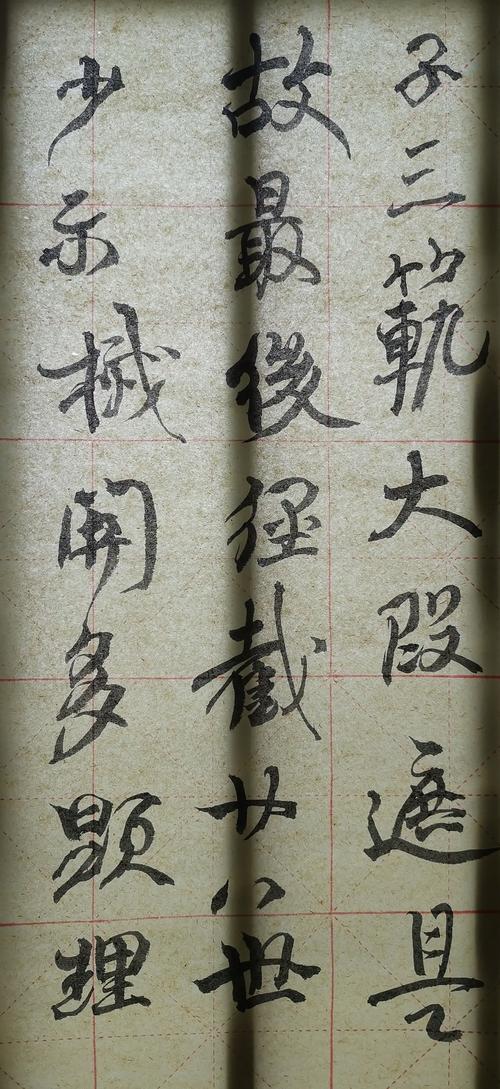 子三範大段遮是
故最後徑截廿八世
少示機關多顯理